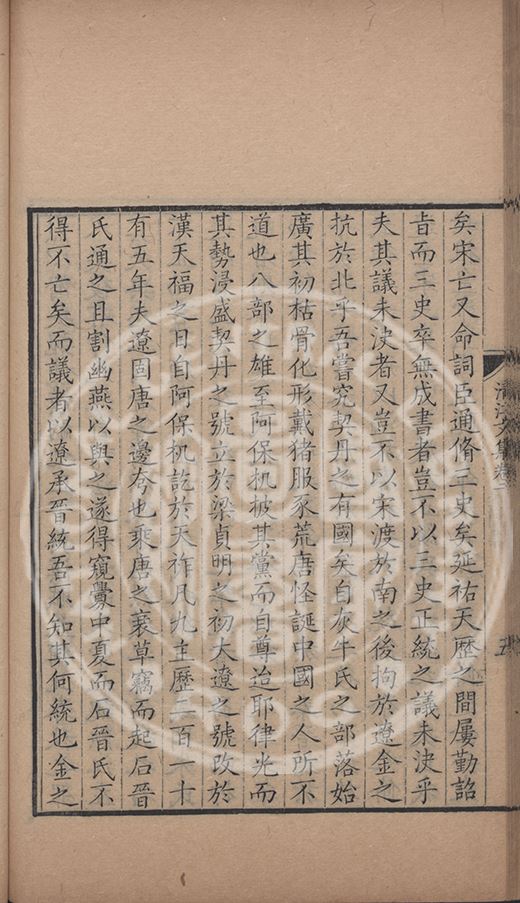 矣宋亡又命詞臣通脩三史矣延祐天歷之間屢勤詔
旨而三史卒無成書者豈不以三史正統之議未決乎
夫其議未決者又豈不以宋渡於南之後拘於遼金之
抗於北乎吾嘗究契丹之有國矣自灰牛氏之部落始
廣其初枯骨化形戴猪服豕荒唐怪誕中國之人所不
道也八部之雄至阿保机披其黨而自尊迨耶律光而
其勢浸盛契丹之號立於梁貞明之初大遼之號改於
漢天福之日自阿保机訖於天祚凡九主歷二百一十
有五年夫遼固唐之邊夸也乘唐之衰草竊而起石晉
氏通之且割幽燕以與之遂得窺釁中夏而石晉氏不
得不亡矣而議者以遼承晉統吾不知其何統也金之
文集卷
五